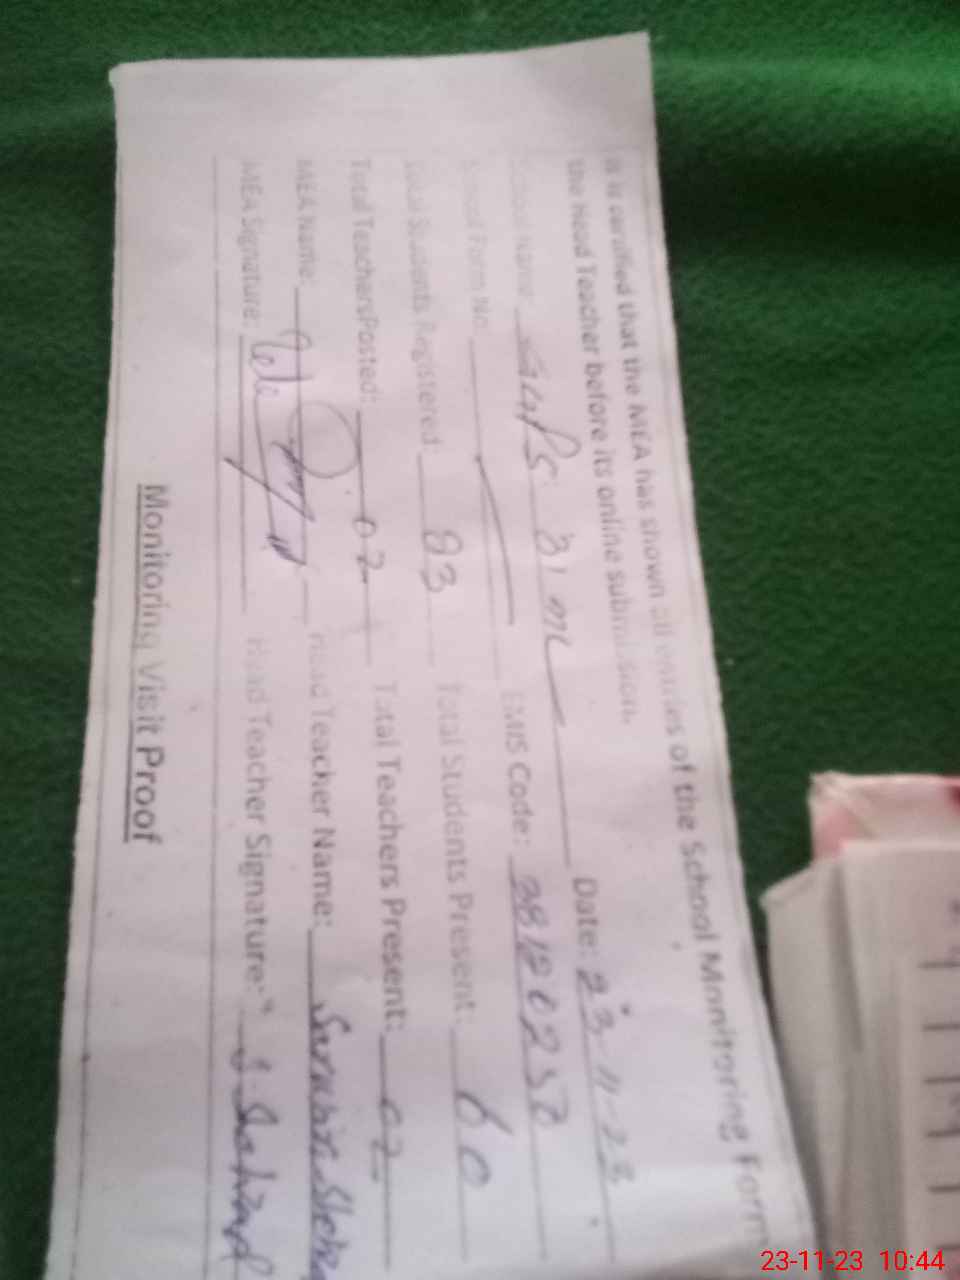 Monitoring Visit Proof
It is certified that the MEA has shown all entries of the School Monitoring Form
the Head Teacher before its online submission.
School Name: Date: 23-11-23
School Form No: EMIS Code:
Total Students Registered: 83 Total Students Present: 60
Total TeachersPosted: 02 Total Teachers Present: 02
MEA Name: Head Teacher Name:
MEA Signature: Head Teacher Signature:
23-11-23 10:44